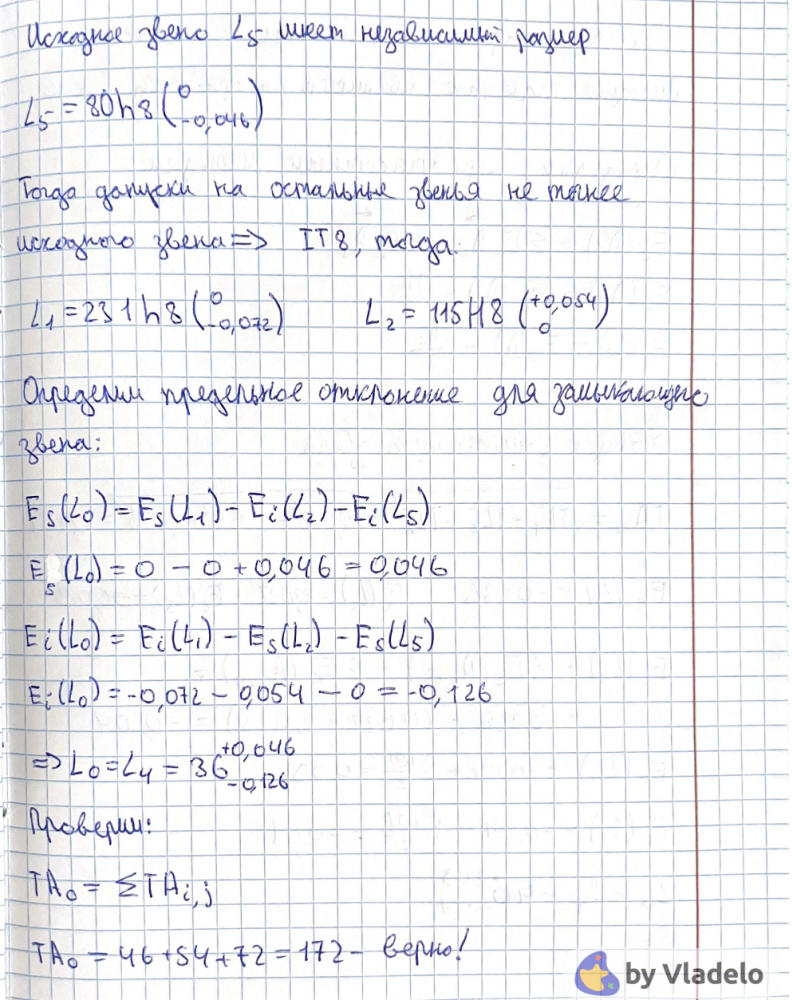 Исходное звено L₅ имеет независимый размер
L₅ = 80h8 (0 -0,046)
Тогда допуски на остальные звенья не точнее
исходного звена => IT8, тогда:
L₁ = 231h8 (0 -0,072) L₂ = 115H8 (+0,054 0)
Определим предельное отклонение для замыкающего
звена:
Es(L₀) = Es(L₁) - Ei(L₂) - Ei(L₅)
Es(L₀) = 0 - 0 + 0,046 = 0,046
Ei(L₀) = Ei(L₁) - Es(L₂) - Es(L₅)
Ei(L₀) = -0,072 - 0,054 - 0 = -0,126
=> L₀ = L₄ = 36 +0,046 -0,126
Проверим:
TA₀ = ΣTAi,j
TA₀ = 46 + 54 + 72 = 172 - верно!
by Vladelo